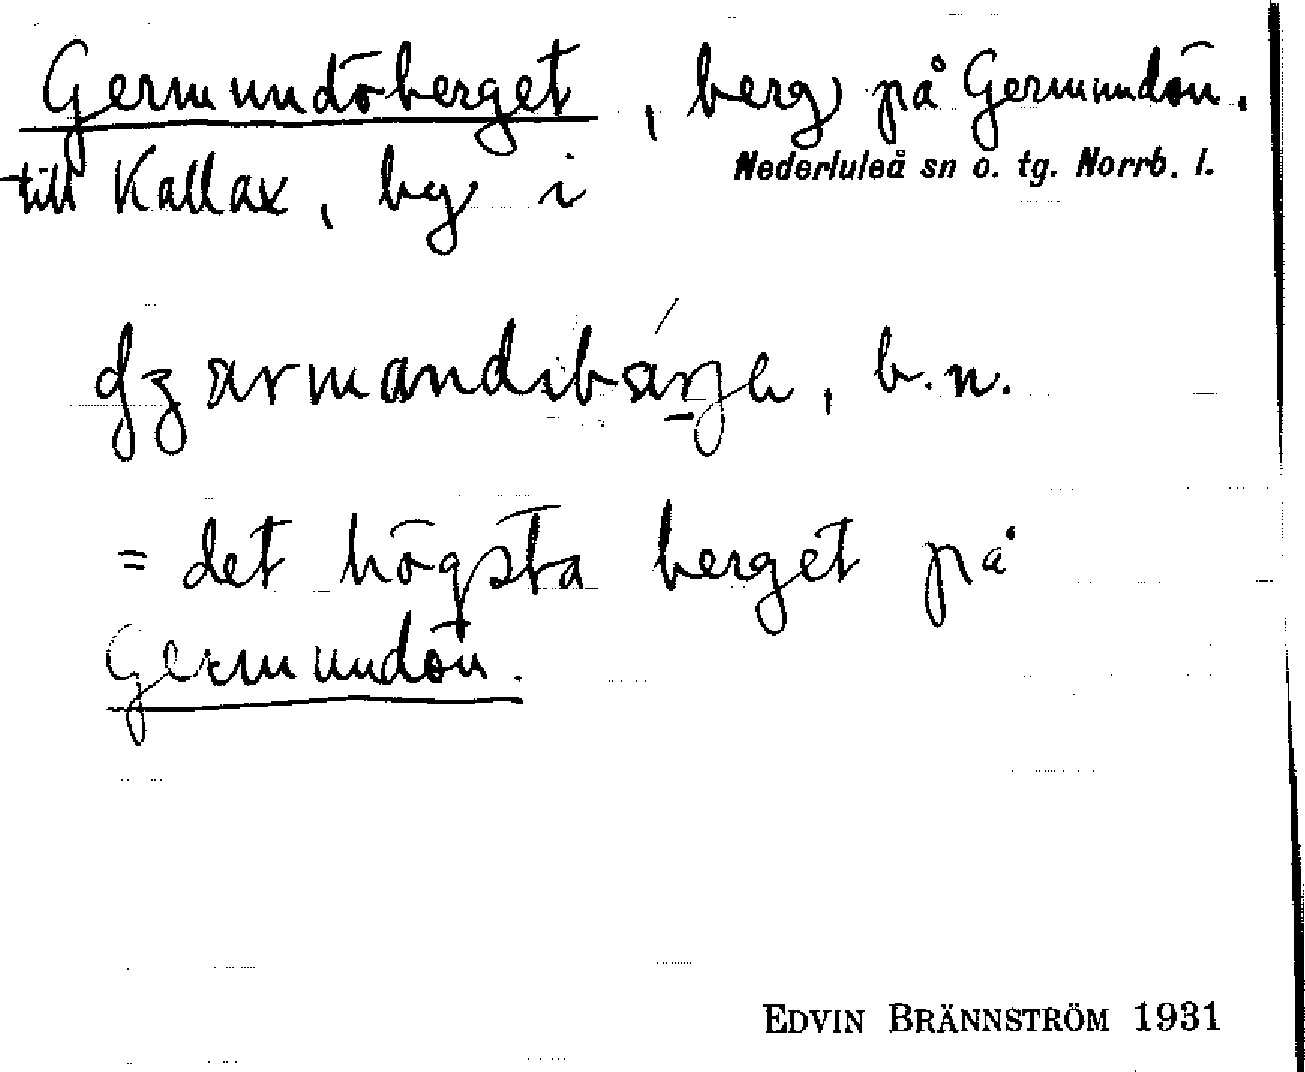 Germundöberget, berg på Germundön.
till Kallax, by i Nederluleå sn o. tg. Norrb. l.
b. n.
= det högsta berget på
Germundön.
EDVIN BRÄNNSTRÖM 1931